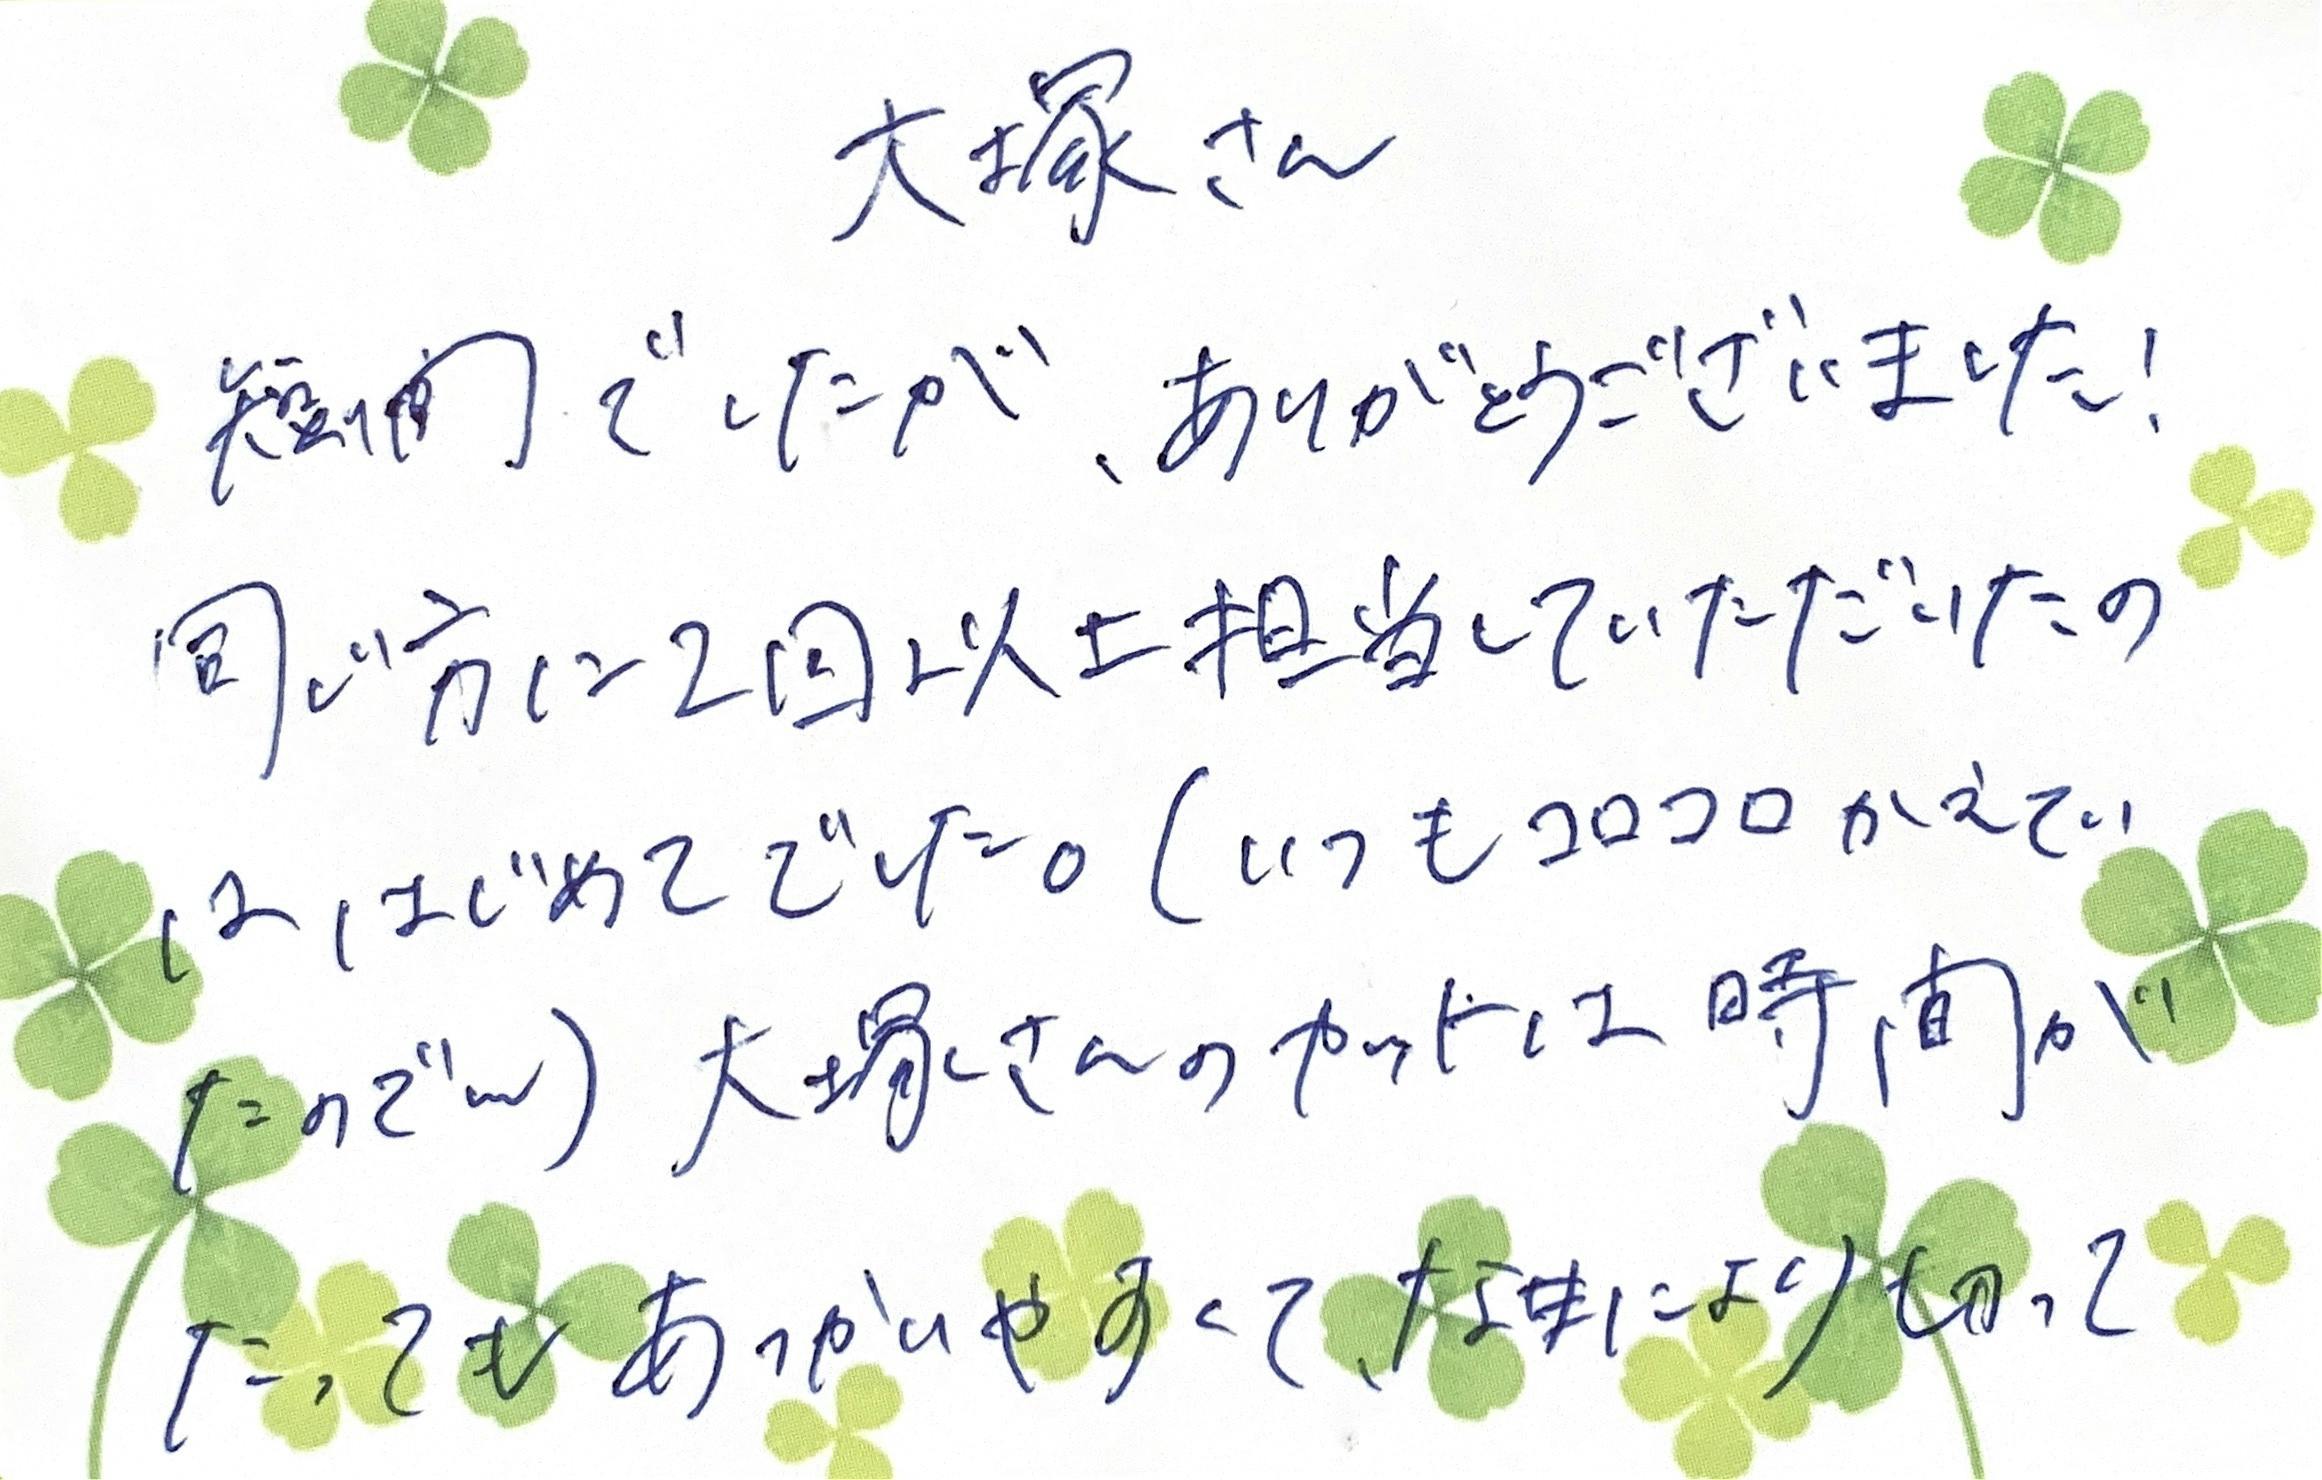 大塚さん
短い間でしたが、ありがとうございました!
同じ方に2回以上担当していただいたの
は、はじめてでした。(いつもコロコロかえてい
たので〜)大塚さんのカットは時間が
たってもあつかいやすくて、なによりも切って